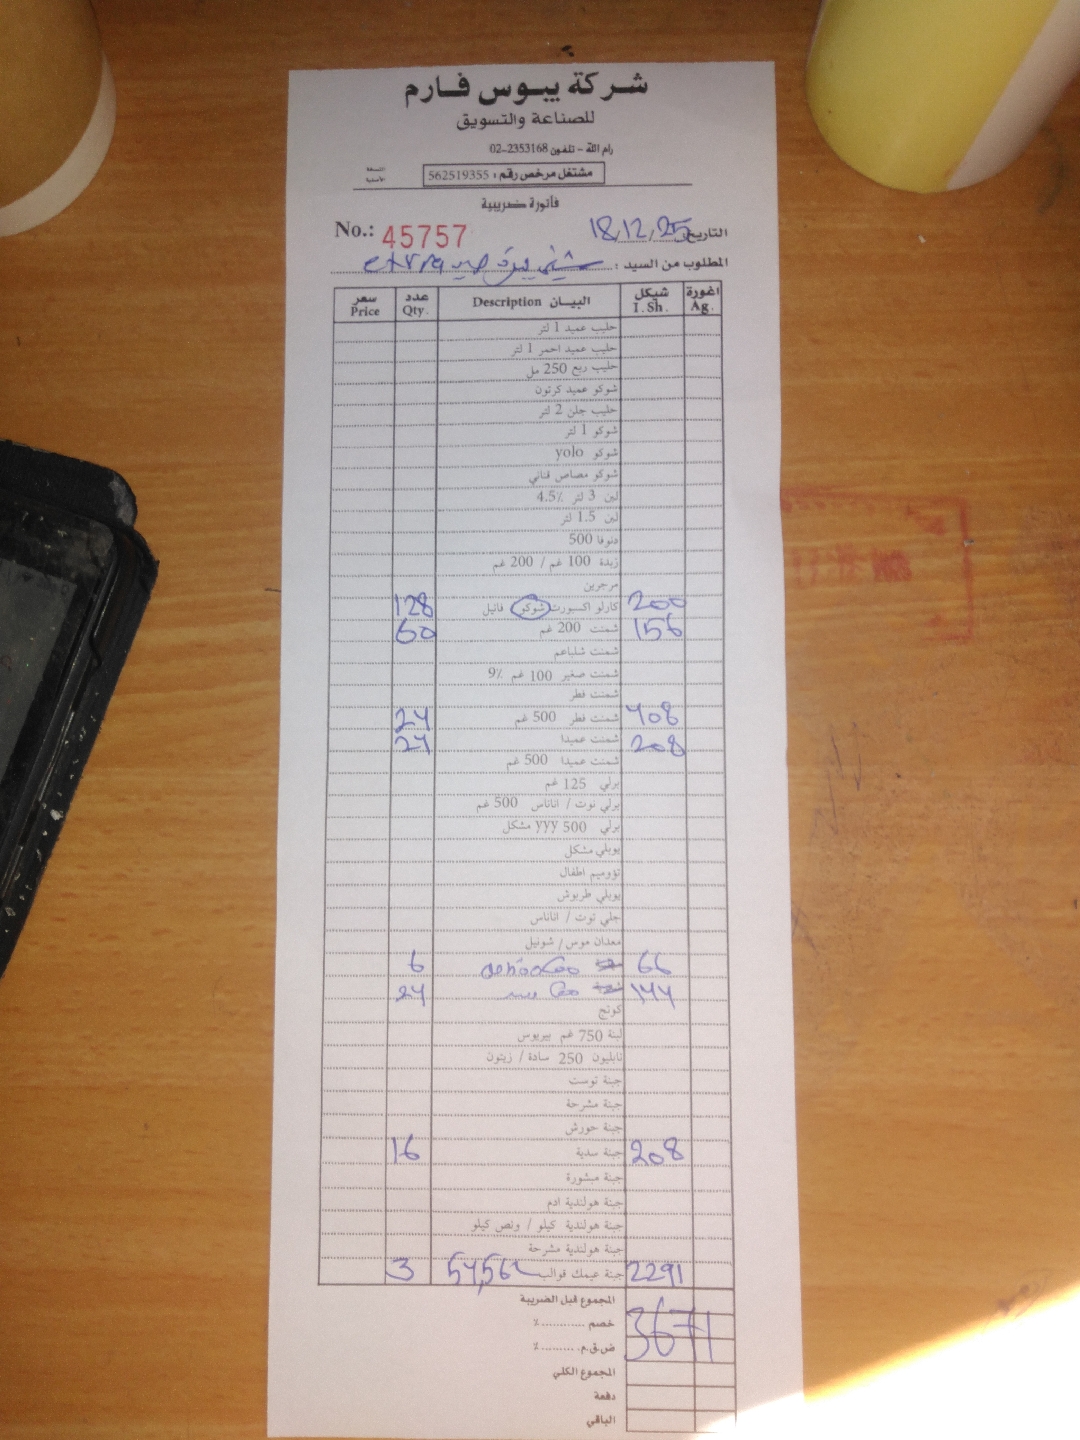 شركة يبوس فارم
للصناعة والتسويق
رام الله - تلفون 2353168-02
مشتغل مرخص رقم: 562519355
النسخة الأصلية
فاتورة ضريبية
No.: 45757
التاريخ 18,12,25
المطلوب من السيد: extra
سعر Price عدد Qty. البيان Description شيكل I.Sh. اغورة Ag.
حليب عميد 1 لتر
حليب عميد احمر 1 لتر
حليب ربع 250 مل
شوكو عميد كرتون
حليب جلن 2 لتر
شوكو 1 لتر
شوكو yolo
شوكو مصاص قناني
لبن 3 لتر 4.5%
لبن 1.5 لتر
دنوفا 500
زبدة 100 غم / 200 غم
مرجرين
128 كارلو اكسبورت شوكو فانيل 200
60 شمنت 200 غم 156
شمنت شلباعم
شمنت صغير 100 غم 9%
شمنت فطر
24 شمنت فطر 500 غم 408
24 شمنت عميدا 208
شمنت عميدا 500 غم
برلي 125 غم
برلي توت / اناناس 500 غم
برلي 500 yyy مشكل
يوبلي مشكل
تؤوميم اطفال
يوبلي طربوش
جلي توت / اناناس
معدان موس / شونيل
6 66
24 144
كوتج
لبنة 750 غم بيريوس
نابليون 250 سادة / زيتون
جبنة توست
جبنة مشرحة
جبنة حورش
16 جبنة سدية 208
جبنة مبشورة
جبنة هولندية ادم
جبنة هولندية كيلو / ونص كيلو
جبنة هولندية مشرحة
3 جبنة عيمك قوالب 54,56 2291
المجموع قبل الضريبة
خصم ........... %
3671
ض.ق.م. ......... %
المجموع الكلي
دفعة
الباقي